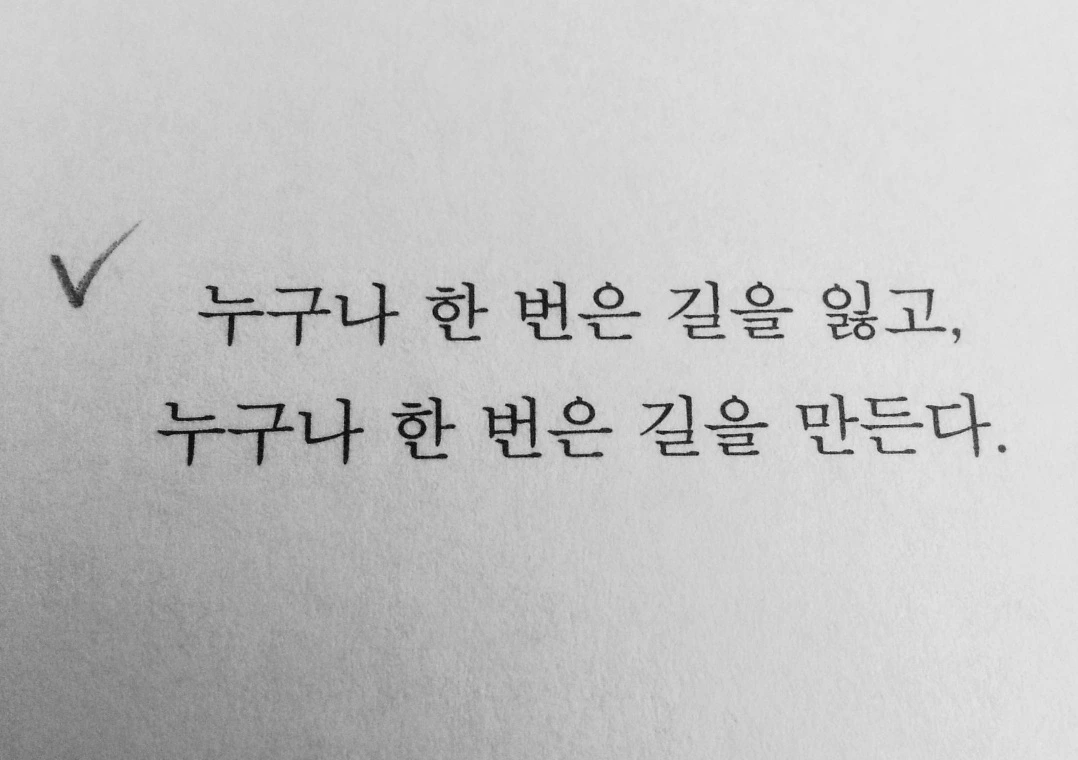 누구나 한 번은 길을 잃고,
누구나 한 번은 길을 만든다.